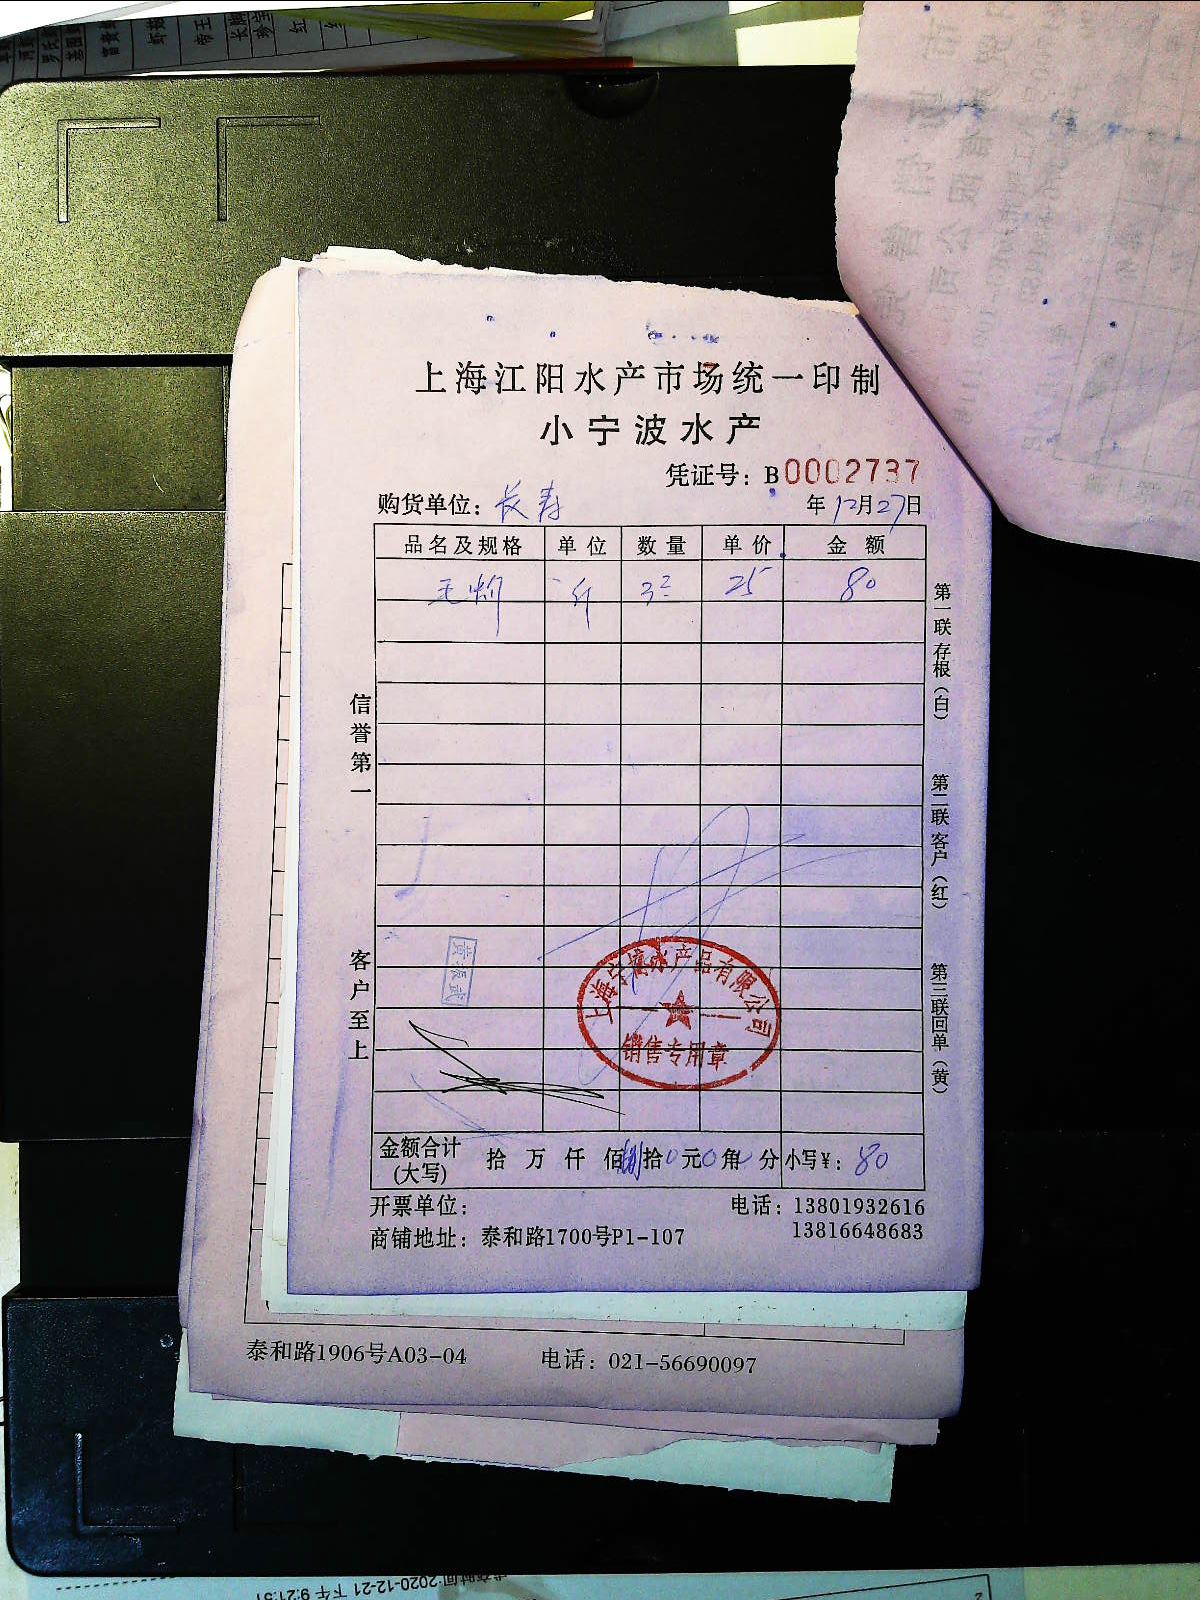 上海江阳水产市场统一印制
小宁波水产
凭证号：B0002737
购货单位：长寿 年12月27日
品名及规格 单位 数量 单价 金额
斤 3² 25 80
信誉第一
客户至上
第一联存根（白）
第二联客户（红）
第三联回单（黄）
销售专用章
金额合计（大写） 拾 万 仟 佰捌拾0元0角 分 小写¥：80
开票单位： 电话：13801932616
13816648683
商铺地址：泰和路1700号P1-107
泰和路1906号A03-04 电话：021-56690097
时间:2020-12-21 下午 9:21:51